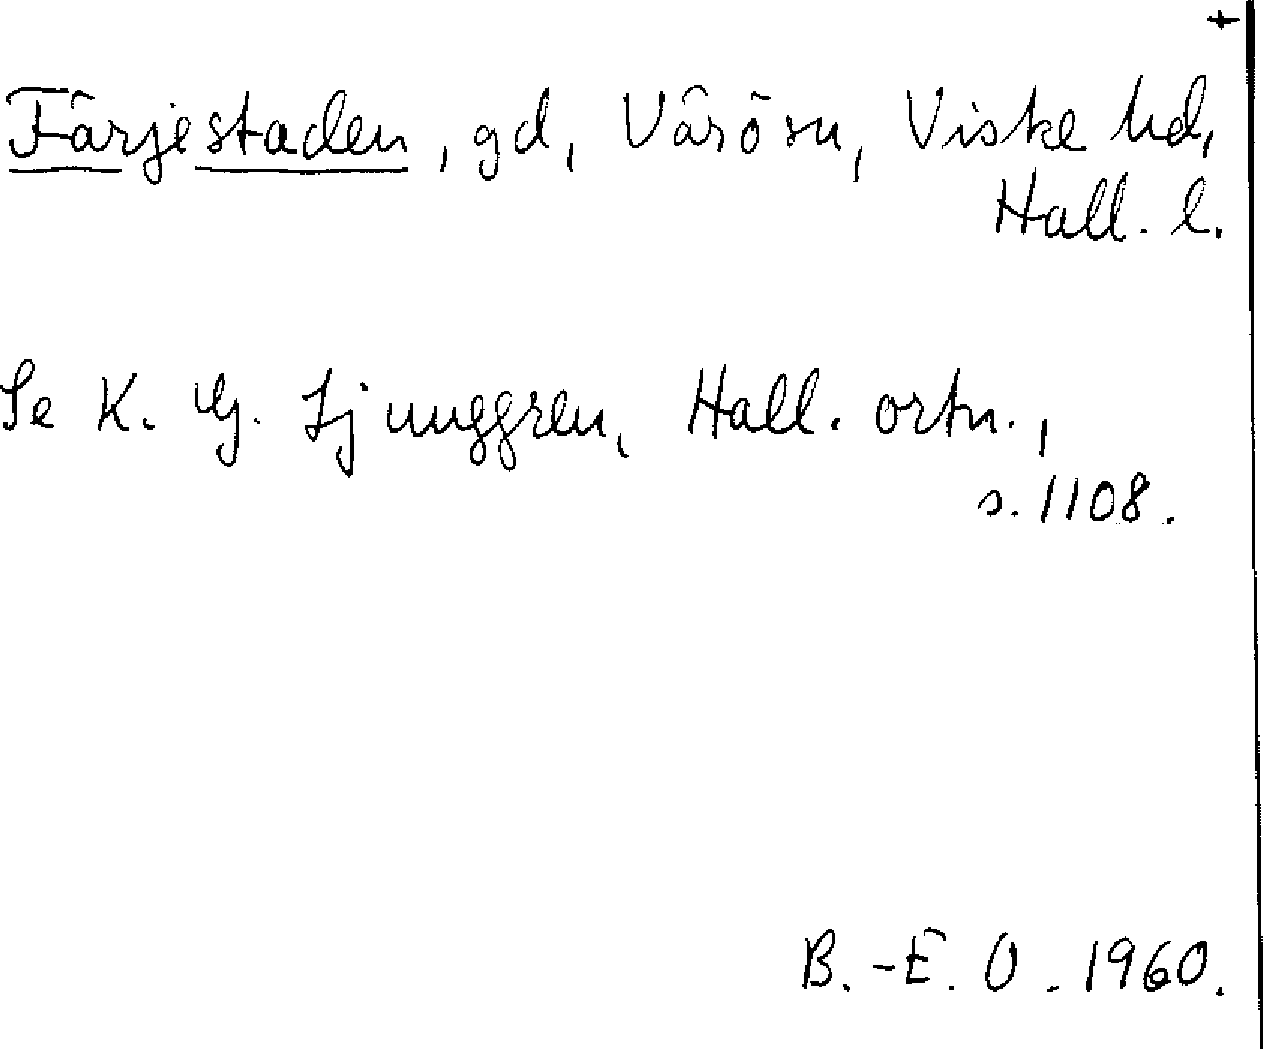 +
Färjestaden, gd, Värö sn, Viske hd,
Hall. l.
Se K. G. Ljunggren, Hall. ortn.,
s. 1108.
B.-E. O. 1960.